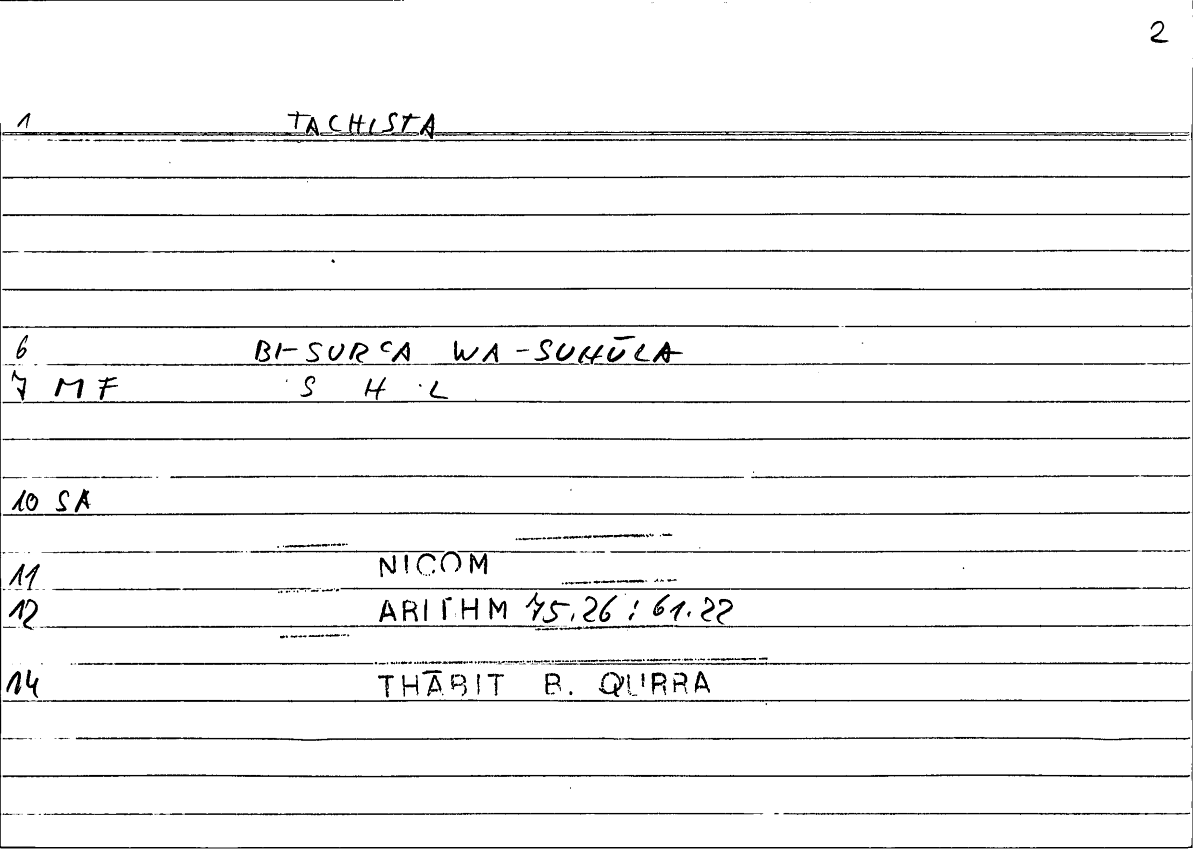 2
1 TACHISTA
6 BI-SURʿA WA-SUHŪLA
7 MF S H L
10 SA
11 NICOM
12 ARITHM 75.26 : 61.22
14 THĀBIT B. QURRA